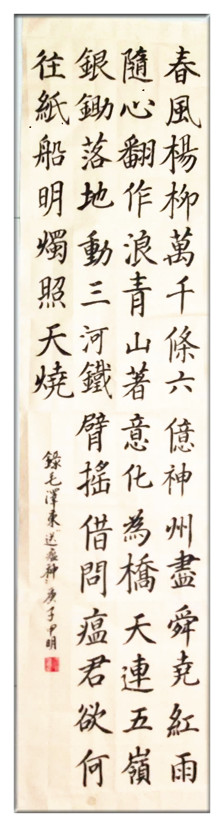 春風楊柳萬千條六億神州盡舜堯紅雨
隨心翻作浪青山著意化為橋天連五嶺
銀鋤落地動三河鐵臂搖借問瘟君欲何
往紙船明燭照天燒
錄毛澤東送瘟神庚子中明